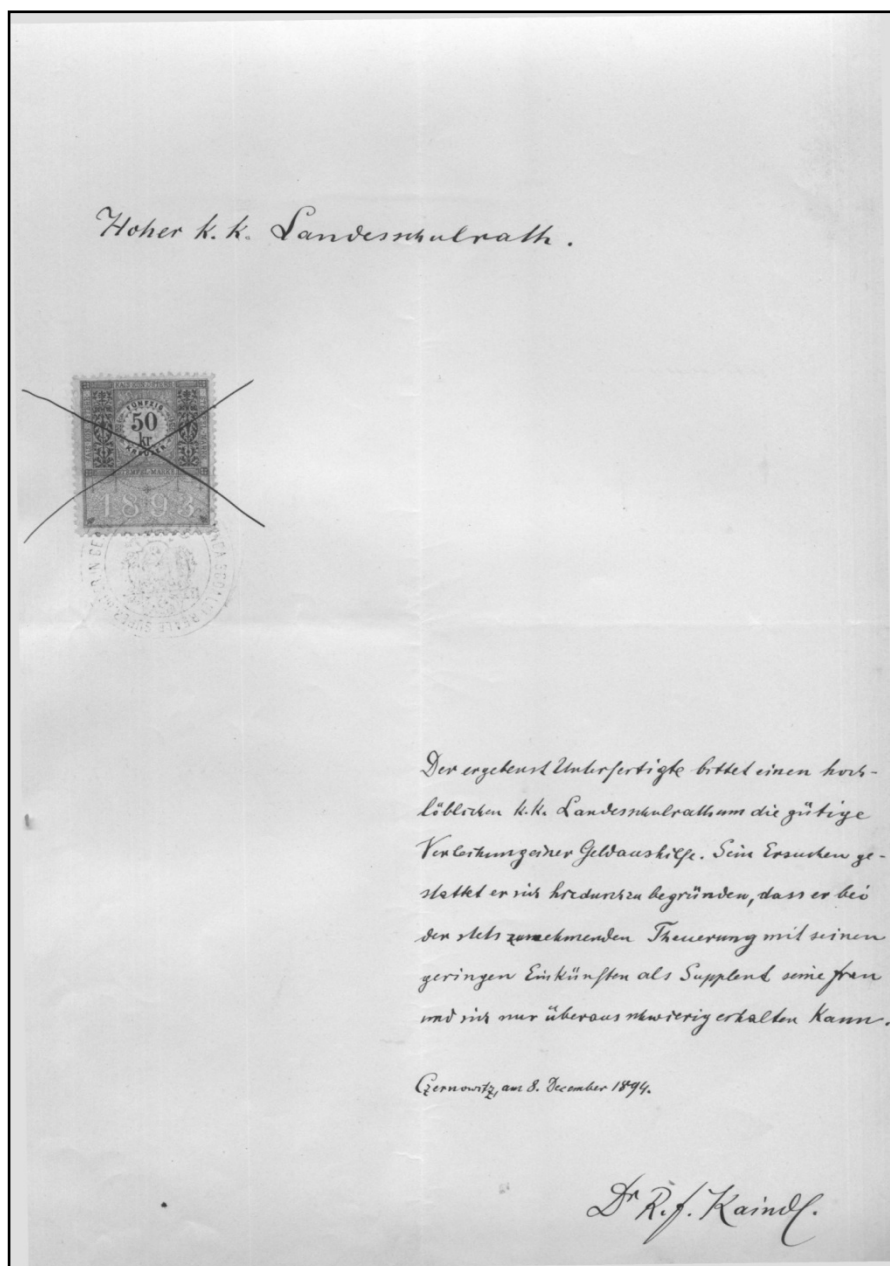 Hoher k. k. Landesschulrath.
FÜNFZIG
50
kr
KREUZER
STEMPEL MARKE
1893
Der ergebenst Unterfertigte bittet einen hoch-
löblichen k. k. Landesschulrath um die gütige
Verleihung einer Geldaushilfe. Sein Ersuchen ge-
stattet er sich hiedurch zu begründen, dass er bei
der stets zunehmenden Theuerung mit seinen
geringen Einkünften als Supplent seine Frau
und sich nur überaus schwierig erhalten kann.
Czernowitz, am 8. December 1894.
Dr R. F. Kaindl.